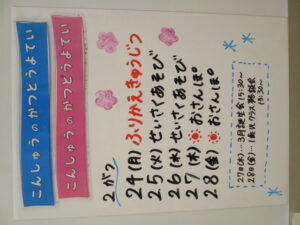 こんしゅうのかつどうよてい
こんしゅうのかつどうよてい
2がつ
24(月)ふりかえきゅうじつ
25(火)せいさくあそび
26(水)せいさくあそび
27(木)おさんぽ
28(金)おさんぽ
27日(木)…3月誕生会15:30〜
28日(金)…1歳児クラス懇談会
15:30〜